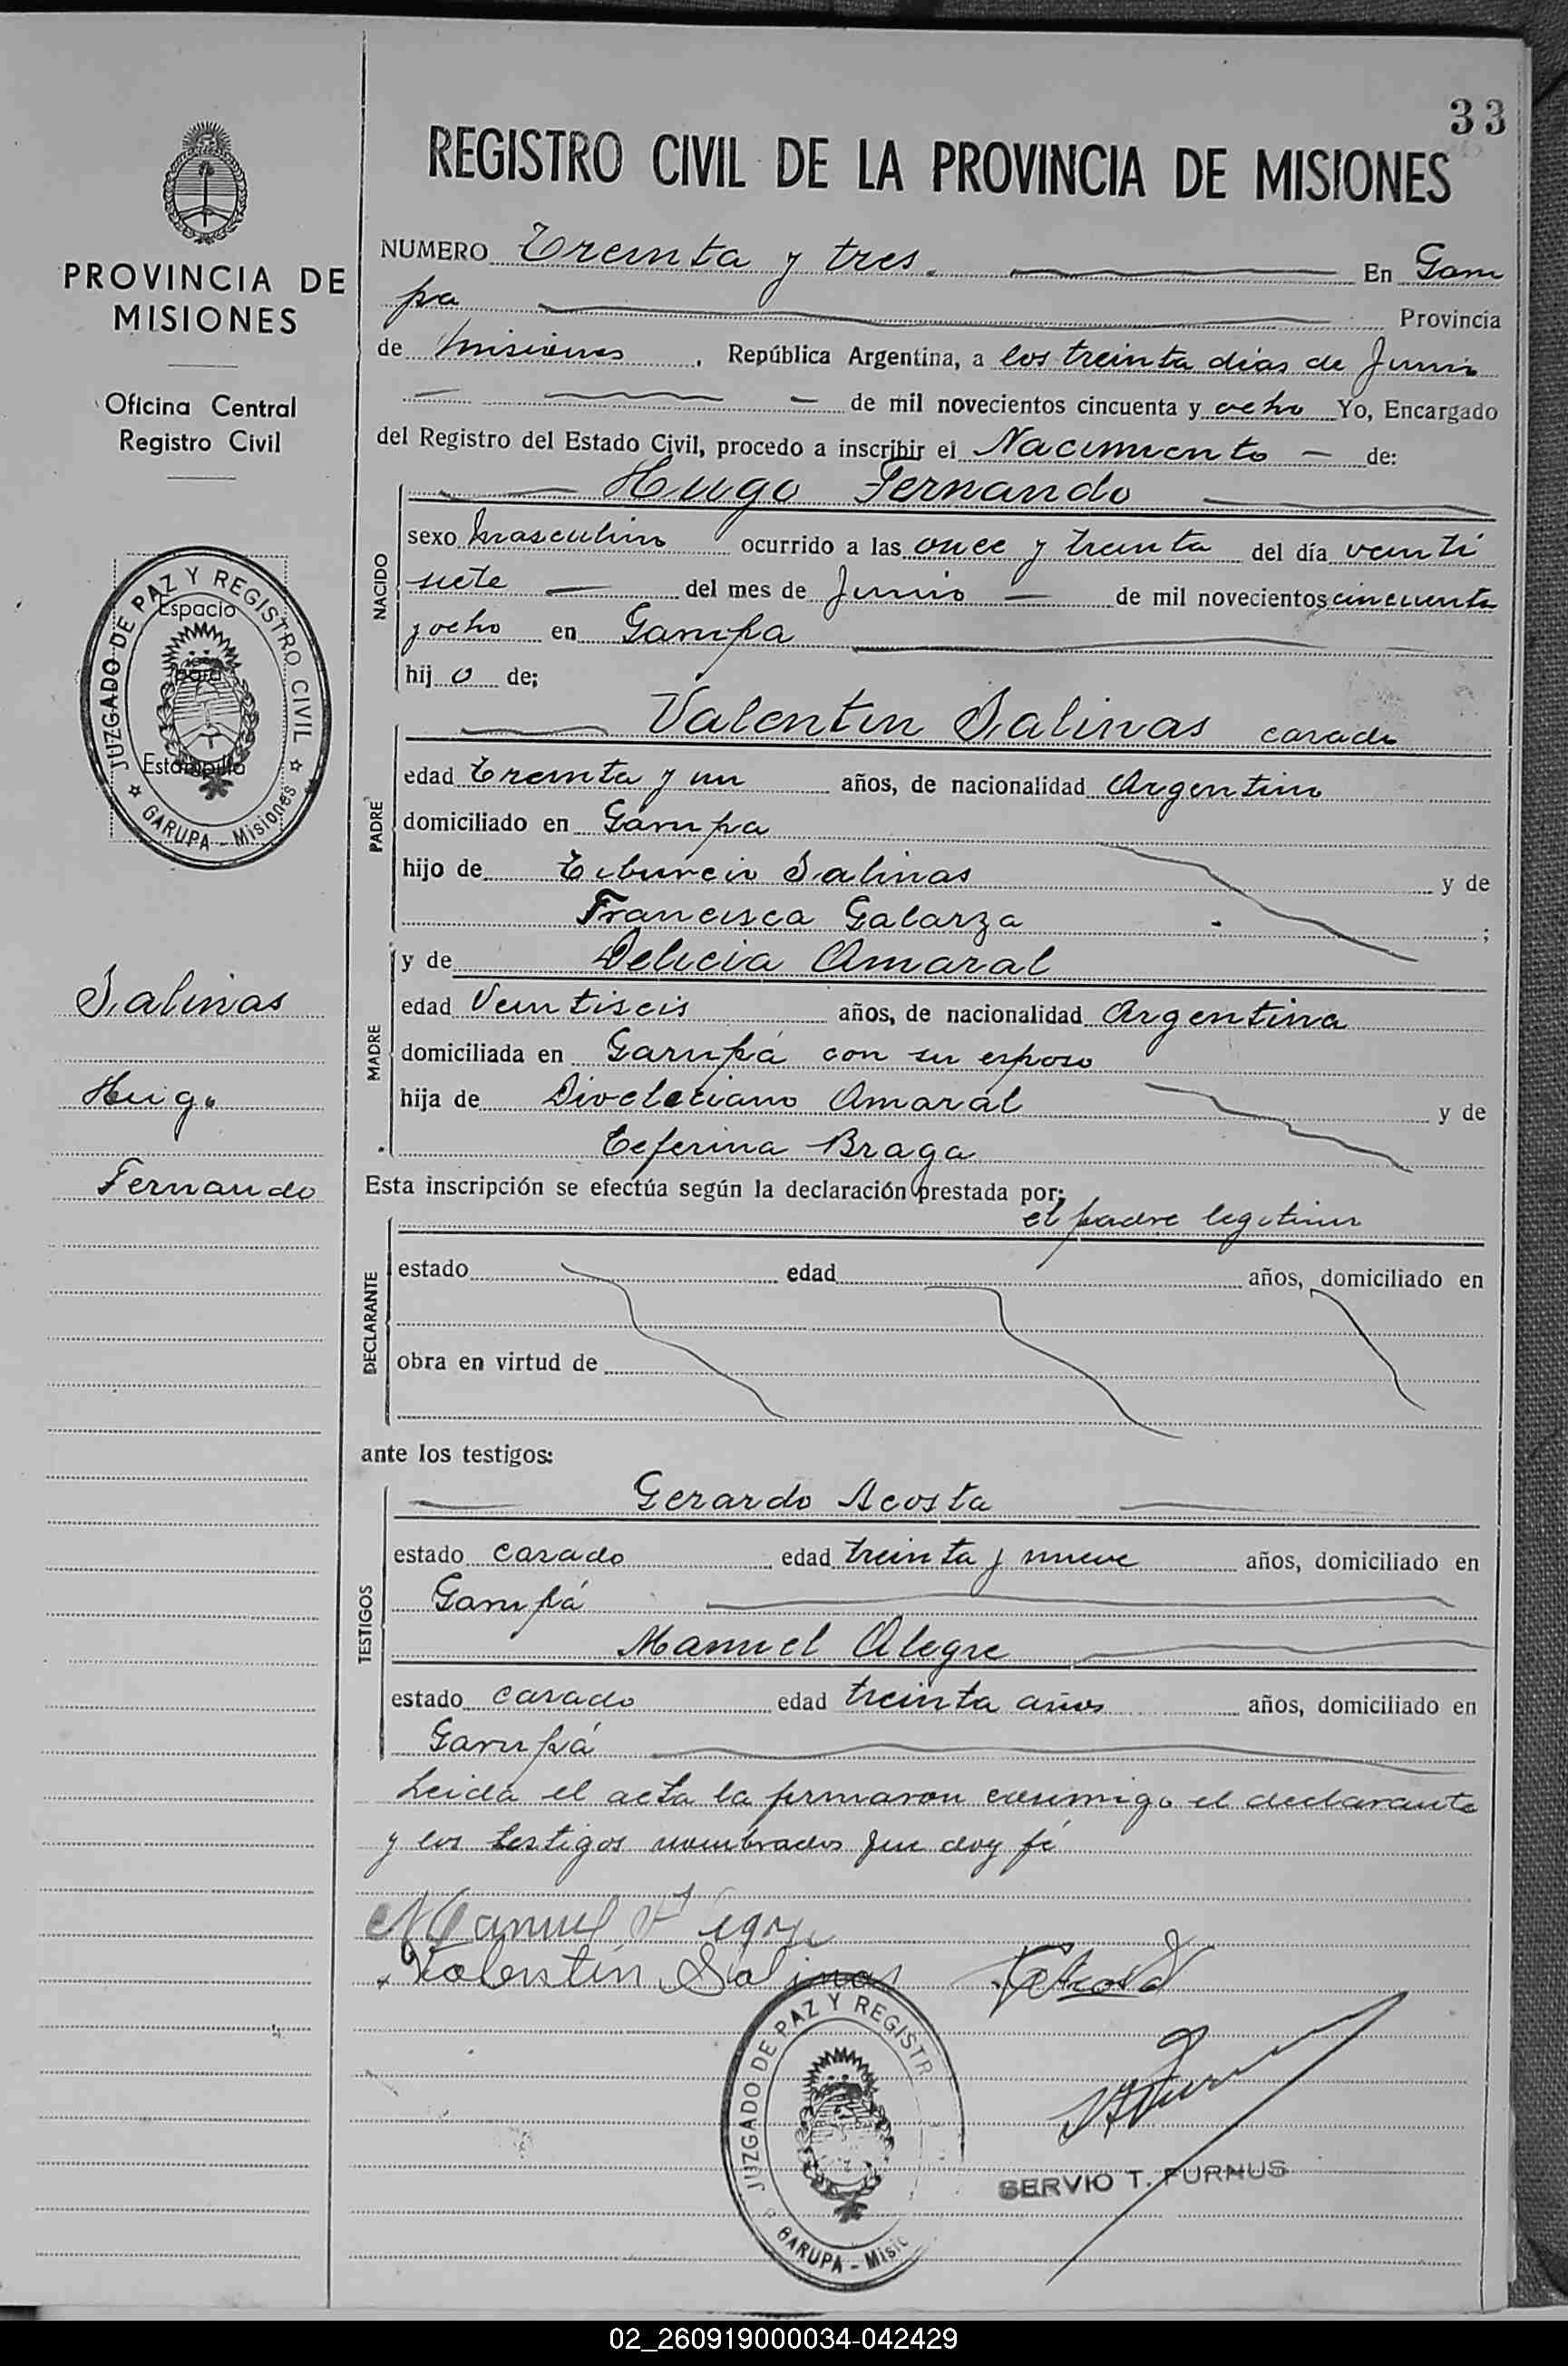 33
REGISTRO CIVIL DE LA PROVINCIA DE MISIONES
PROVINCIA DE
MISIONES
Oficina Central
Registro Civil
JUZGADO DE PAZ Y REGISTRO CIVIL
GARUPA - Misiones
Espacio
para
Estampilla
Salinas
Hugo
Fernando
NUMERO Treinta y tres. En Garu
pa Provincia
de Misiones. República Argentina, a los treinta dias de Junio
de mil novecientos cincuenta y ocho Yo, Encargado
del Registro del Estado Civil, procedo a inscribir el Nacimiento - de:
Hugo Fernando
NACIDO
sexo masculino ocurrido a las once y treinta del día veinti
siete - del mes de Junio - de mil novecientos cincuenta
y ocho en Garupa
hij o de;
Valentin Salinas casado
PADRE
edad Treinta y un años, de nacionalidad Argentino
domiciliado en Garupa
hijo de Tiburcio Salinas y de
Francisca Galarza ;
y de Delicia Amaral
MADRE
edad Veintiseis años, de nacionalidad Argentina
domiciliada en Garupá con su esposo
hija de Diocleciano Amaral y de
Ceferina Braga
Esta inscripción se efectúa según la declaración prestada por:
el padre legitimo
DECLARANTE
estado edad años, domiciliado en
obra en virtud de
ante los testigos:
Gerardo Acosta
TESTIGOS
estado casado edad treinta y nueve años, domiciliado en
Garupá
Manuel Alegre
estado casado edad treinta años años, domiciliado en
Garupá
Leida el acta la firmaron conmigo el declarante
y los testigos nombrados que doy fé
Manuel Alegre
Valentín Salinas GAcosta
JUZGADO DE PAZ Y REGISTR
GARUPA - Misio
SERVIO T. FURNUS
02_260919000034-042429